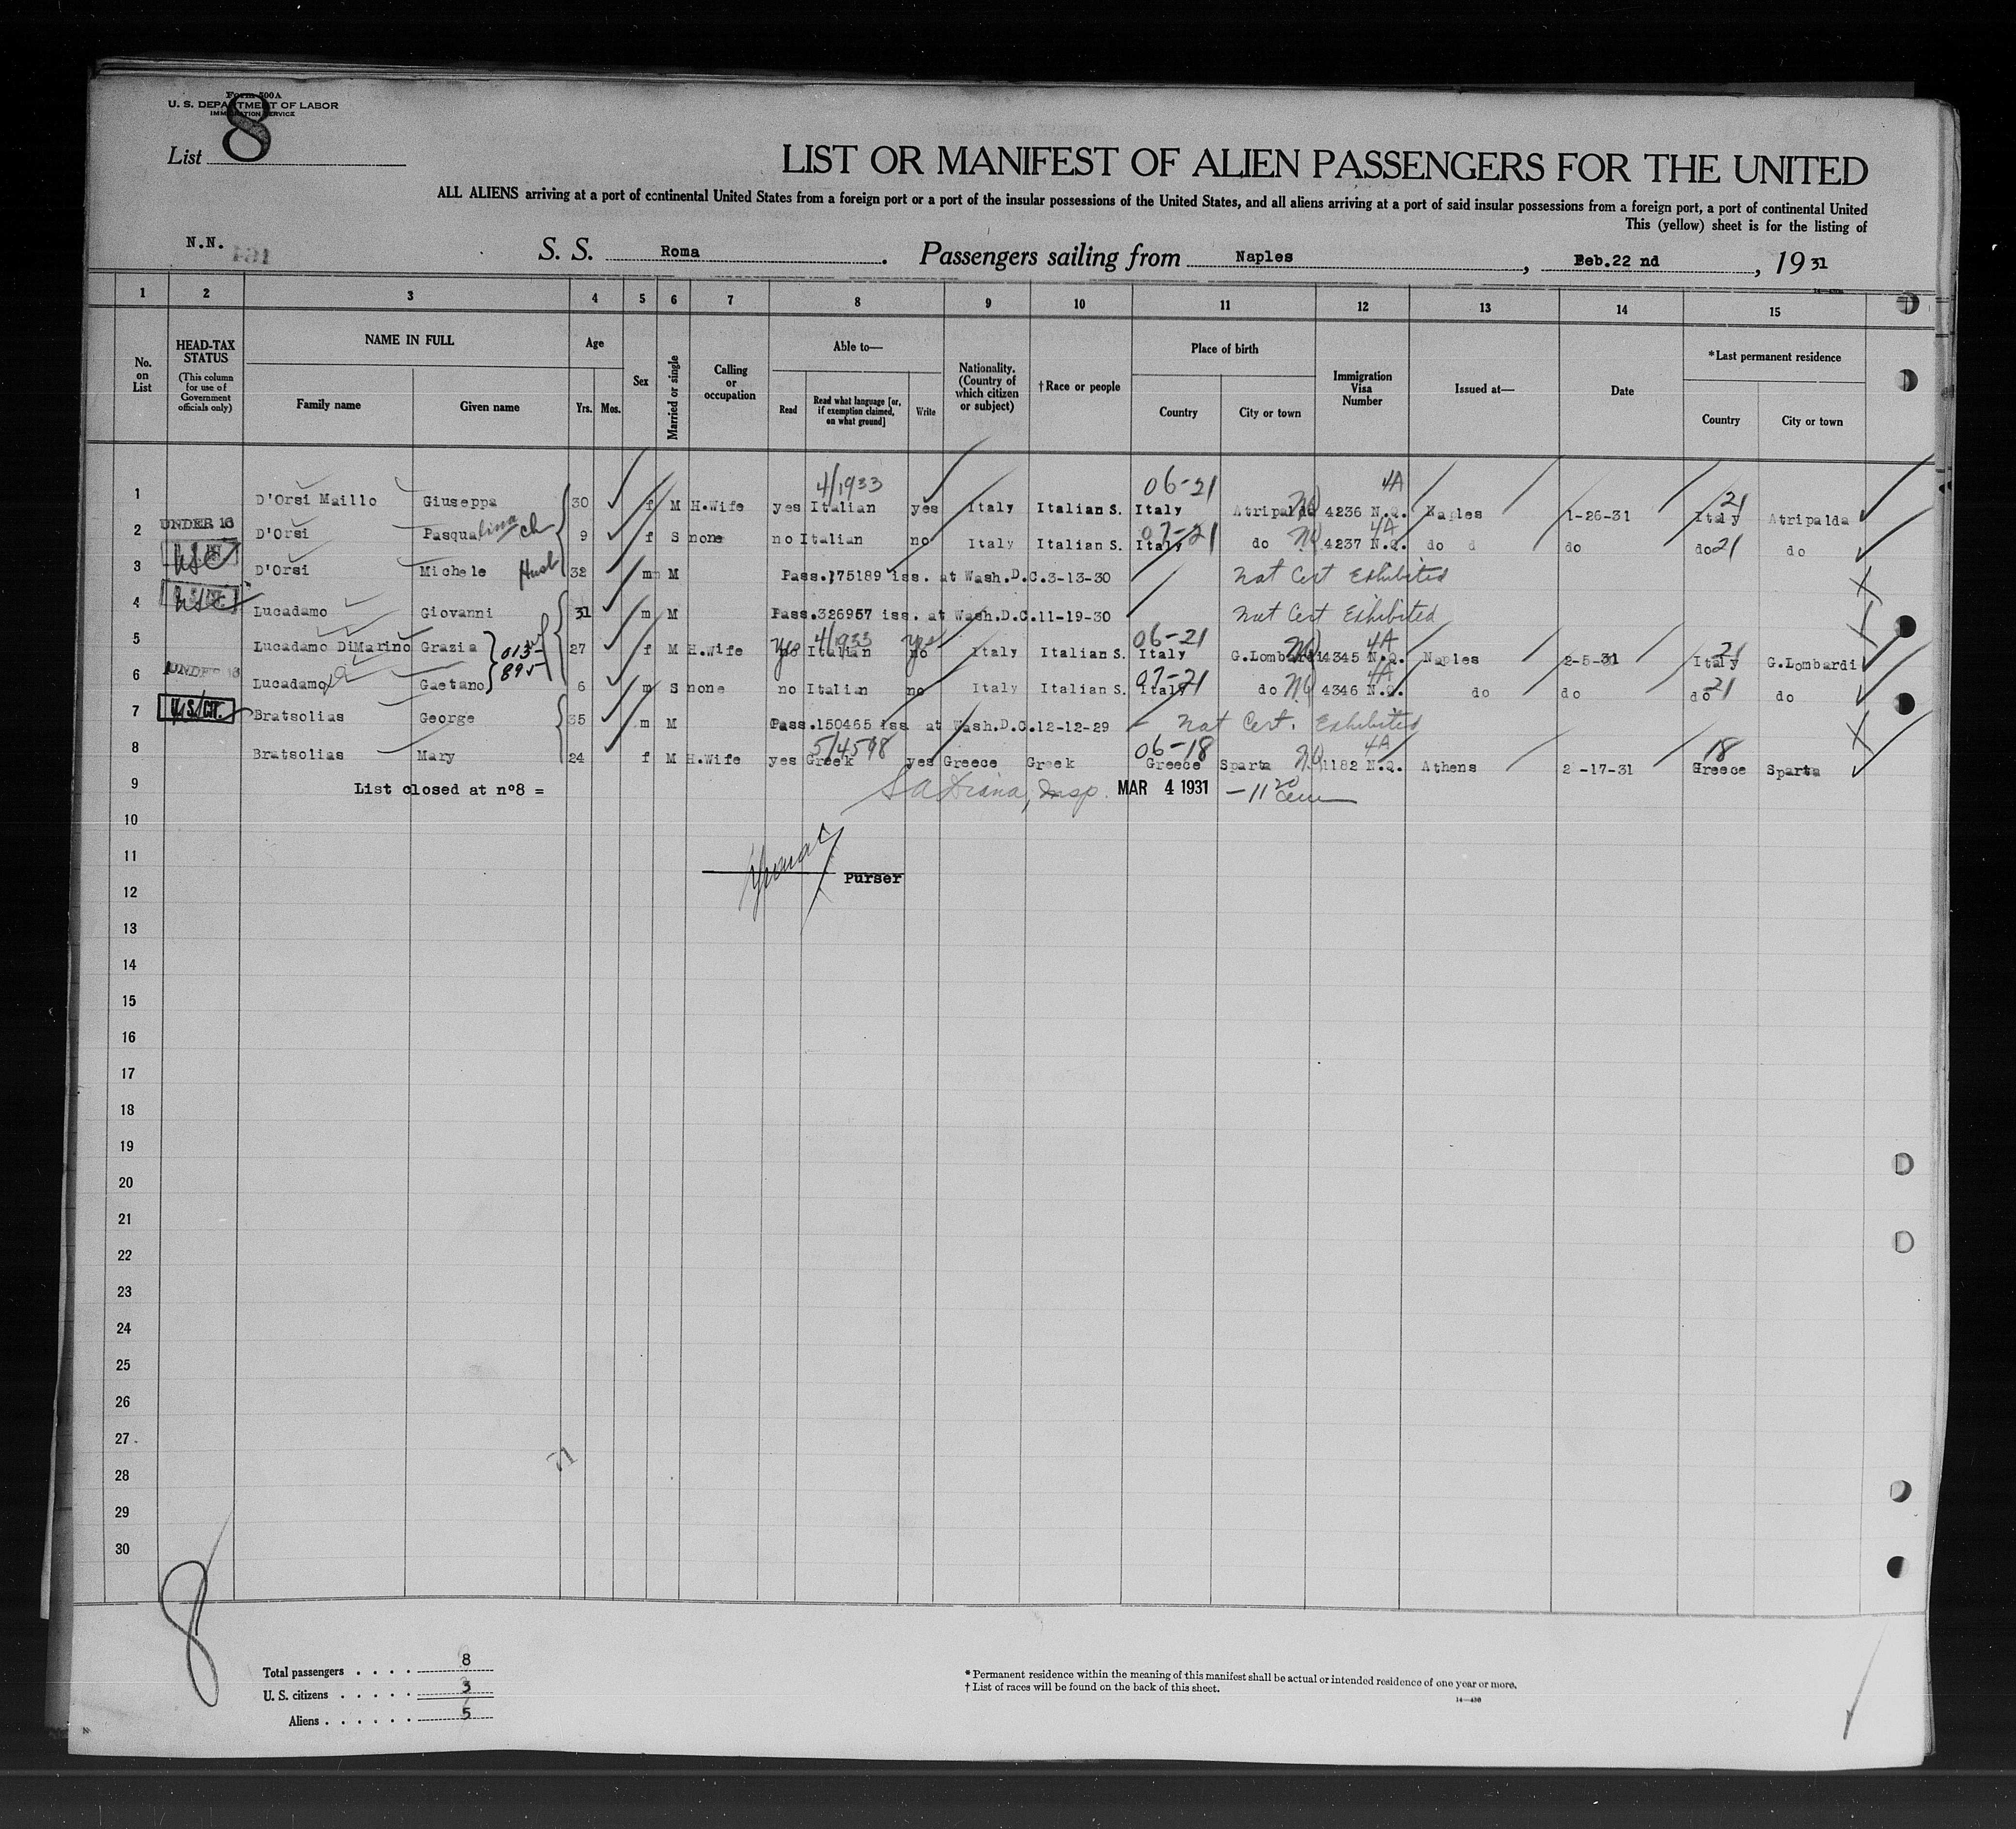 Form 500A
U. S. DEPARTMENT OF LABOR
IMMIGRATION SERVICE
List 8
LIST OR MANIFEST OF ALIEN PASSENGERS FOR THE UNITED
ALL ALIENS arriving at a port of continental United States from a foreign port or a port of the insular possessions of the United States, and all aliens arriving at a port of said insular possessions from a foreign port, a port of continental United
This (yellow) sheet is for the listing of
N.N.
S. S. Roma. Passengers sailing from Naples, Beb.22 nd, 19 31
1 2 3 4 5 6 7 8 9 10 11 12 13 14 15
No. on List
HEAD-TAX STATUS (This column for use of Government officials only)
NAME IN FULL Family name Given name
Age Yrs. Mos.
Sex
Married or single
Calling or occupation
Able to— Read Read what language [or, if exemption claimed, on what ground] Write
Nationality. (Country of which citizen or subject)
†Race or people
Place of birth Country City or town
Immigration Visa Number
Issued at—
Date
*Last permanent residence Country City or town
4/1933 06-21 4A 21
1 D'Orsi Maillo Giuseppa 30 f M H.Wife yes Italian yes Italy Italian S. Italy Atripalda 4236 N.Q. Naples 1-26-31 Italy Atripalda
UNDER 16 07-21 4A
2 D'Orsi Pasqualina ch 9 f S none no Italian no Italy Italian S. Italy do 4237 N.Q. do d do do 21 do
3 USC D'Orsi Michele Husb 32 m M Pass.175189 iss. at Wash.D.C.3-13-30 Nat Cert Exhibited
4 USC Lucadamo Giovanni 31 m M Pass.326957 iss. at Wash.D.C.11-19-30 Nat Cert Exhibited
4/1933 06-21 4A 21
5 Lucadamo DiMarino Grazia 013- 27 f M H.Wife Yes Italian Yes Italy Italian S. Italy G.Lombardi 4345 N.Q. Naples 2-5-31 Italy G.Lombardi
UNDER 16 895 07-21 4A
6 Lucadamo Gaetano 6 m S none no Italian no Italy Italian S. Italy do 4346 N.Q. do do do 21 do
7 U.S.CIT. Bratsolias George 35 m M Pass.150465 iss at Wash.D.C.12-12-29 - Nat Cert. Exhibited
5/4598 06-18 4A 18
8 Bratsolias Mary 24 f M H.Wife yes Greek yes Greece Greek Greece Sparta 1182 N.Q. Athens 2-17-31 Greece Sparta
9 List closed at nº8 = S A Diana, Insp. MAR 4 1931 -11
10
11
Purser
12
13
14
15
16
17
18
19
20
21
22
23
24
25
26
27
28
29
30
8
Total passengers . . . . 8
U. S. citizens . . . . . 3
Aliens . . . . . . 5
* Permanent residence within the meaning of this manifest shall be actual or intended residence of one year or more.
† List of races will be found on the back of this sheet.
14—430